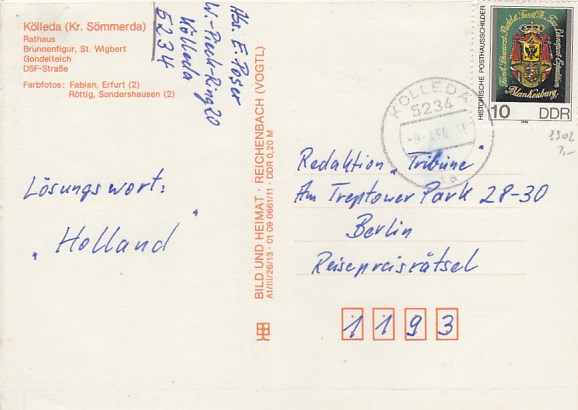 Kölleda (Kr. Sömmerda)
Rathaus
Brunnenfigur, St. Wigbert
Gondelteich
DSF-Straße
Farbfotos: Fabian, Erfurt (2)
Röttig, Sondershausen (2)
Abs. E. Poser
W.-Pieck-Ring 20
Kölleda
5234
Lösungswort:
„Holland"
BILD UND HEIMAT · REICHENBACH (VOGTL)
A1/III/26/13 · 01 09 0661/11 · DDR 0,20 M
KÖLLEDA
5234
HISTORISCHE POSTHAUSSCHILDER
Blankenburg
10 DDR
2302
Redaktion „Tribüne"
Am Treptower Park 28-30
Berlin
Reisepreisrätsel
1193